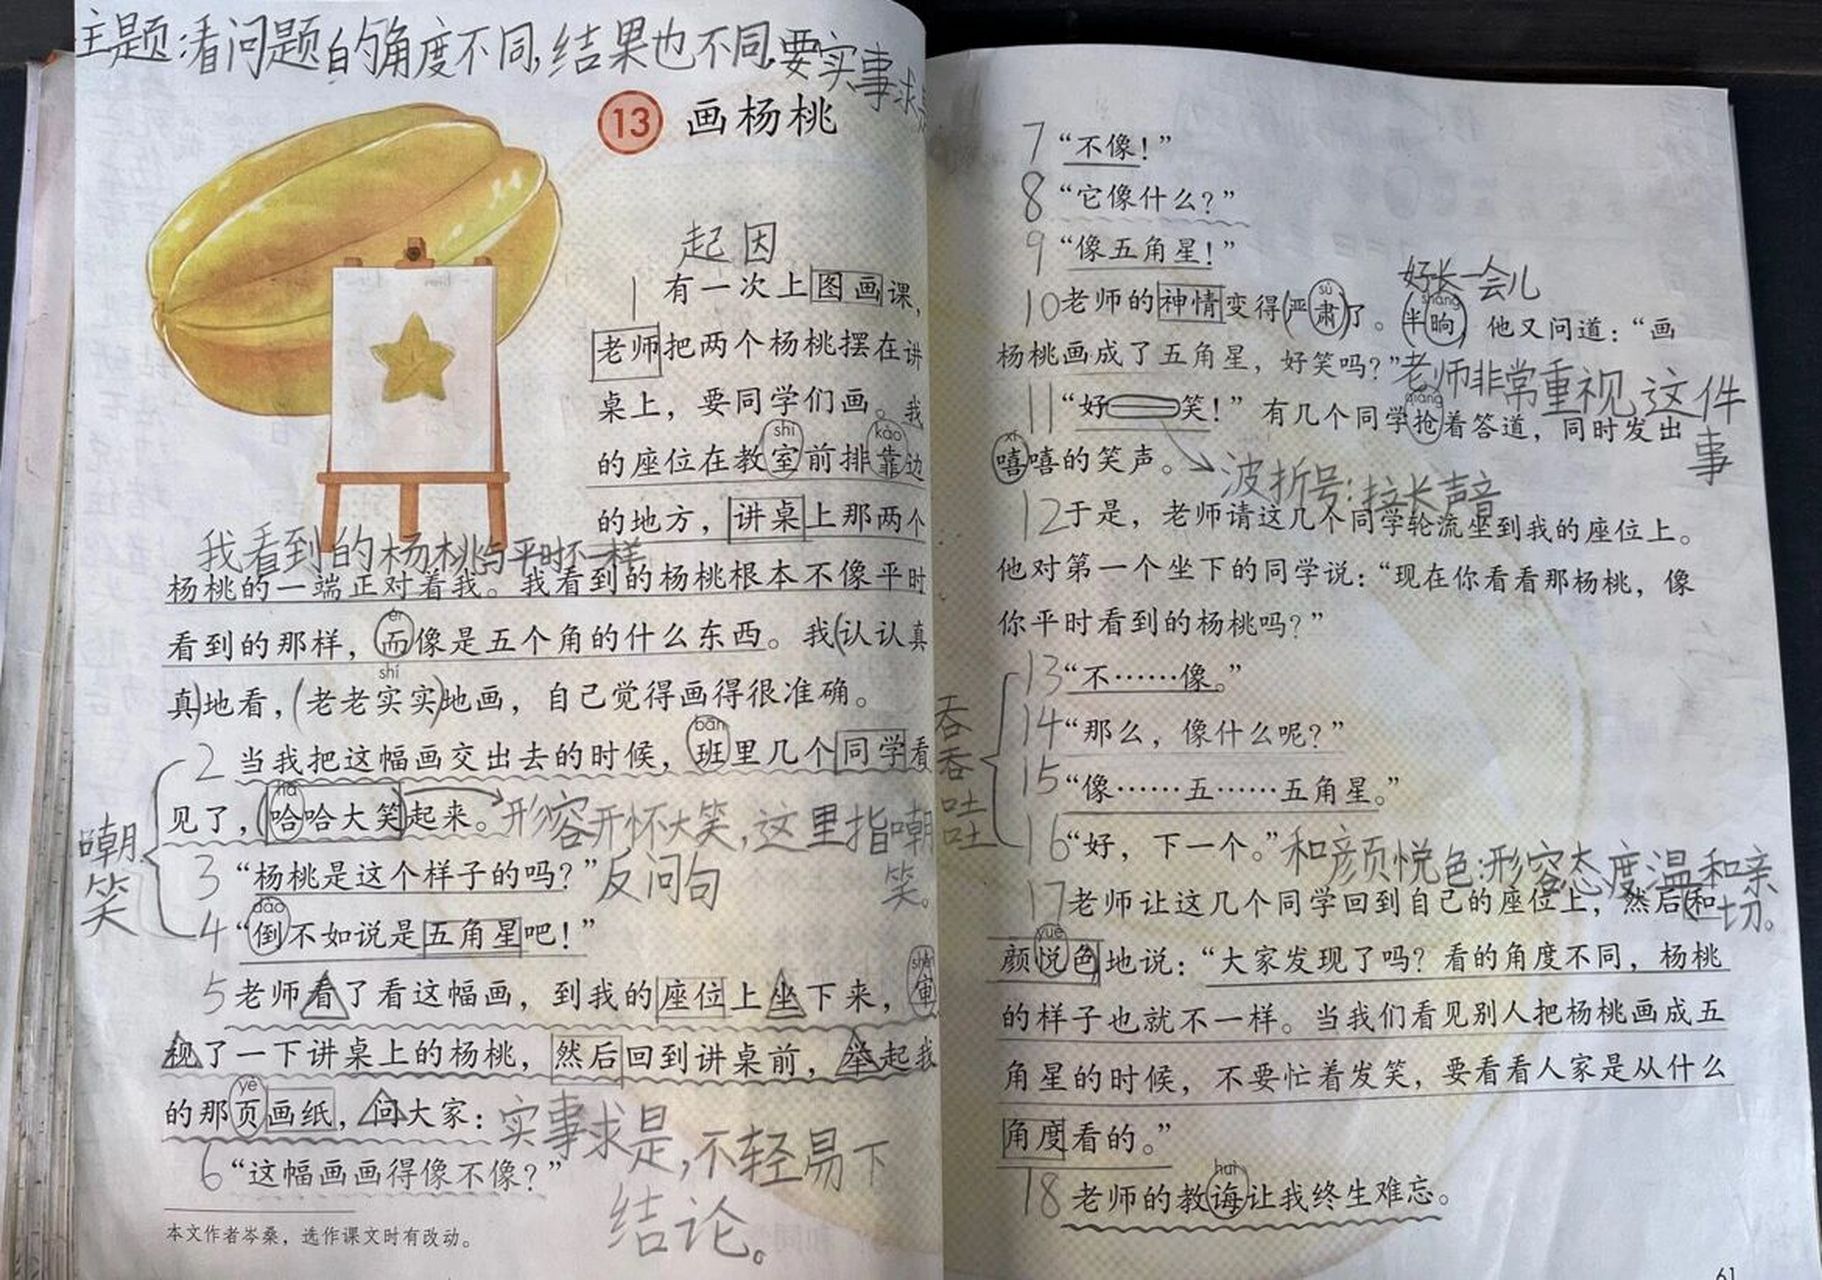 主题:看问题的角度不同,结果也不同,要实事求是
13 画杨桃
起因
1 有一次上图画课,
老师把两个杨桃摆在讲
桌上，要同学们画。我
shì kào
的座位在教室前排靠边
的地方，讲桌上那两个
我看到的杨桃与平时不一样
杨桃的一端正对着我。我看到的杨桃根本不像平时
ér
看到的那样，而像是五个角的什么东西。我(认认真
shí
真)地看，(老老实实)地画，自己觉得画得很准确。
bān
2 当我把这幅画交出去的时候，班里几个同学看
hā
见了，(哈哈大笑)起来。形容开怀大笑,这里指嘲
笑。
嘲笑
3 “杨桃是这个样子的吗？”反问句
dào
4 “倒不如说是五角星吧！”
5 老师看了看这幅画，到我的座位上坐下来，审
视了一下讲桌上的杨桃，然后回到讲桌前，举起我
yè
的那页画纸，问大家：实事求是,不轻易下
结论。
6 “这幅画画得像不像？”
本文作者岑桑，选作课文时有改动。
7 “不像！”
8 “它像什么？”
9 “像五角星！”
好长一会儿
sù shǎng
10 老师的神情变得(严肃)了。(半晌)，他又问道：“画
杨桃画成了五角星，好笑吗？”老师非常重视这件
事
qiǎng
11 “好——笑！”有几个同学抢着答道，同时发出
xī
嘻嘻的笑声。波折号:拉长声音
12 于是，老师请这几个同学轮流坐到我的座位上。
他对第一个坐下的同学说：“现在你看看那杨桃，像
你平时看到的杨桃吗？”
吞吞吐吐
13 “不……像。”
14 “那么，像什么呢？”
15 “像……五……五角星。”
16 “好，下一个。”和颜悦色:形容态度温和亲
切。
17 老师让这几个同学回到自己的座位上，然后(和
yuè
颜悦色)地说：“大家发现了吗？看的角度不同，杨桃
的样子也就不一样。当我们看见别人把杨桃画成五
角星的时候，不要忙着发笑，要看看人家是从什么
角度看的。”
huì
18 老师的教诲让我终生难忘。
61